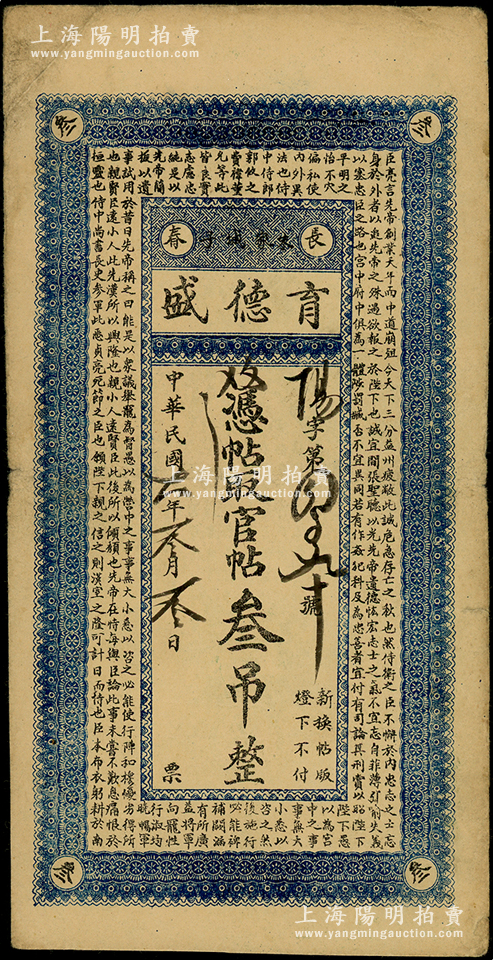 上海陽明拍賣
www.yangmingauction.com
叁
叁
長春
育德盛
陽字第
號
憑帖取官帖叁吊整
中華民國
年
月
日
新換帖版
燈下不付
票
臣亮言先帝創業
而中道崩殂今天下三分益州疲敝此誠危急存亡之秋也然侍衛之臣不懈於內忠志之士忘
身於外者
以塞忠臣之路也宮中府中俱為一體陟罰臧否不宜異同若有作奸犯科及為忠善者宜付有司論其刑賞以昭陛下
平明之
偏私使
內外異
法也侍
中侍郎
郭攸之
費禕董
允等此
皆良實
志慮忠
純是以
先帝簡
拔以遺
陛下愚
以為宮
中之事
事無大
小悉以
咨之然
後施行
必能裨
補闕漏
有所廣
益將軍
向寵性
行淑均
曉暢軍
事試用於昔日先帝稱之曰能是以眾議舉寵為督愚以為營中之事事無大小悉以咨之必能使行陣和穆優劣得所
也親賢臣遠小人此先漢所以興隆也親小人遠賢臣此後
所以傾頹也先帝在時每與臣論此事未嘗不歎息痛恨於
桓靈也侍中尚書長史參軍此悉貞亮死節之臣也
陛下親之信之則漢室之隆可計日而待也臣本布衣躬耕於南
叁
叁
上海陽明拍賣
www.yangmingauction.com
上海陽明拍賣
www.yangmingauction.com